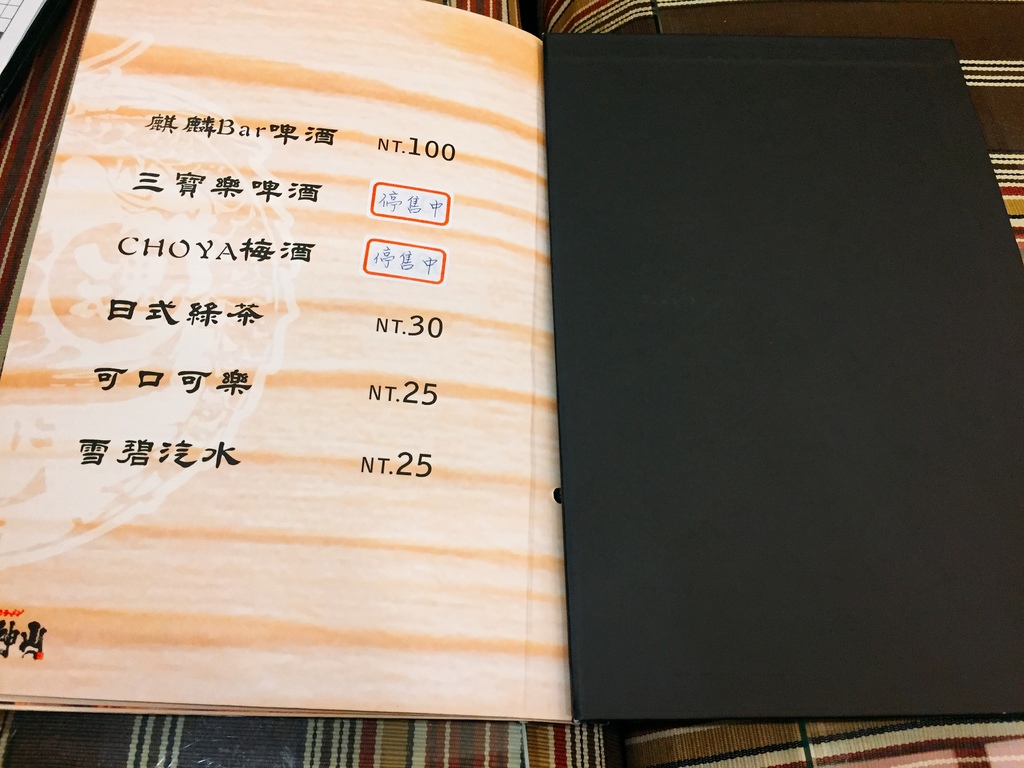 麒麟Bar啤酒 NT.100
三寶樂啤酒 停售中
CHOYA梅酒 停售中
日式綠茶 NT.30
可口可樂 NT.25
雪碧汽水 NT.25